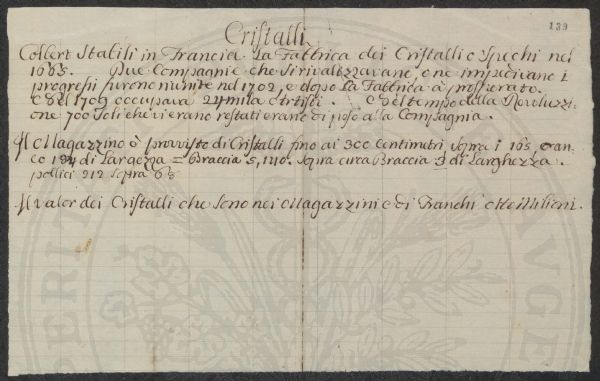 139
Cristalli
Colbert Stabili in Francia La Fabbrica dei Cristalli o Spechi nel
1665. Due Compagnie che si rivalizzavano, e ne impedivano i
progressi furono riunite nel 1702, e dopo La Fabbrica à prosperato.
e del 1709 occupava 24 mila Artisti. e del tempo della Revoluzzi-
one 700 Soli che vi erano restati erano di peso a la Compagnia.
Il Magazzino è provvisto di Cristalli fino ai 300 Centimetri sopra i 165, o an-
co 184 di Largezza = Braccia 5, 1/10. Sopra circa Braccia 3 di Larghezza.
pollici 112 sopra 68
Il valor dei Cristalli che sono nei Magazzini è di Franchi Milioni.